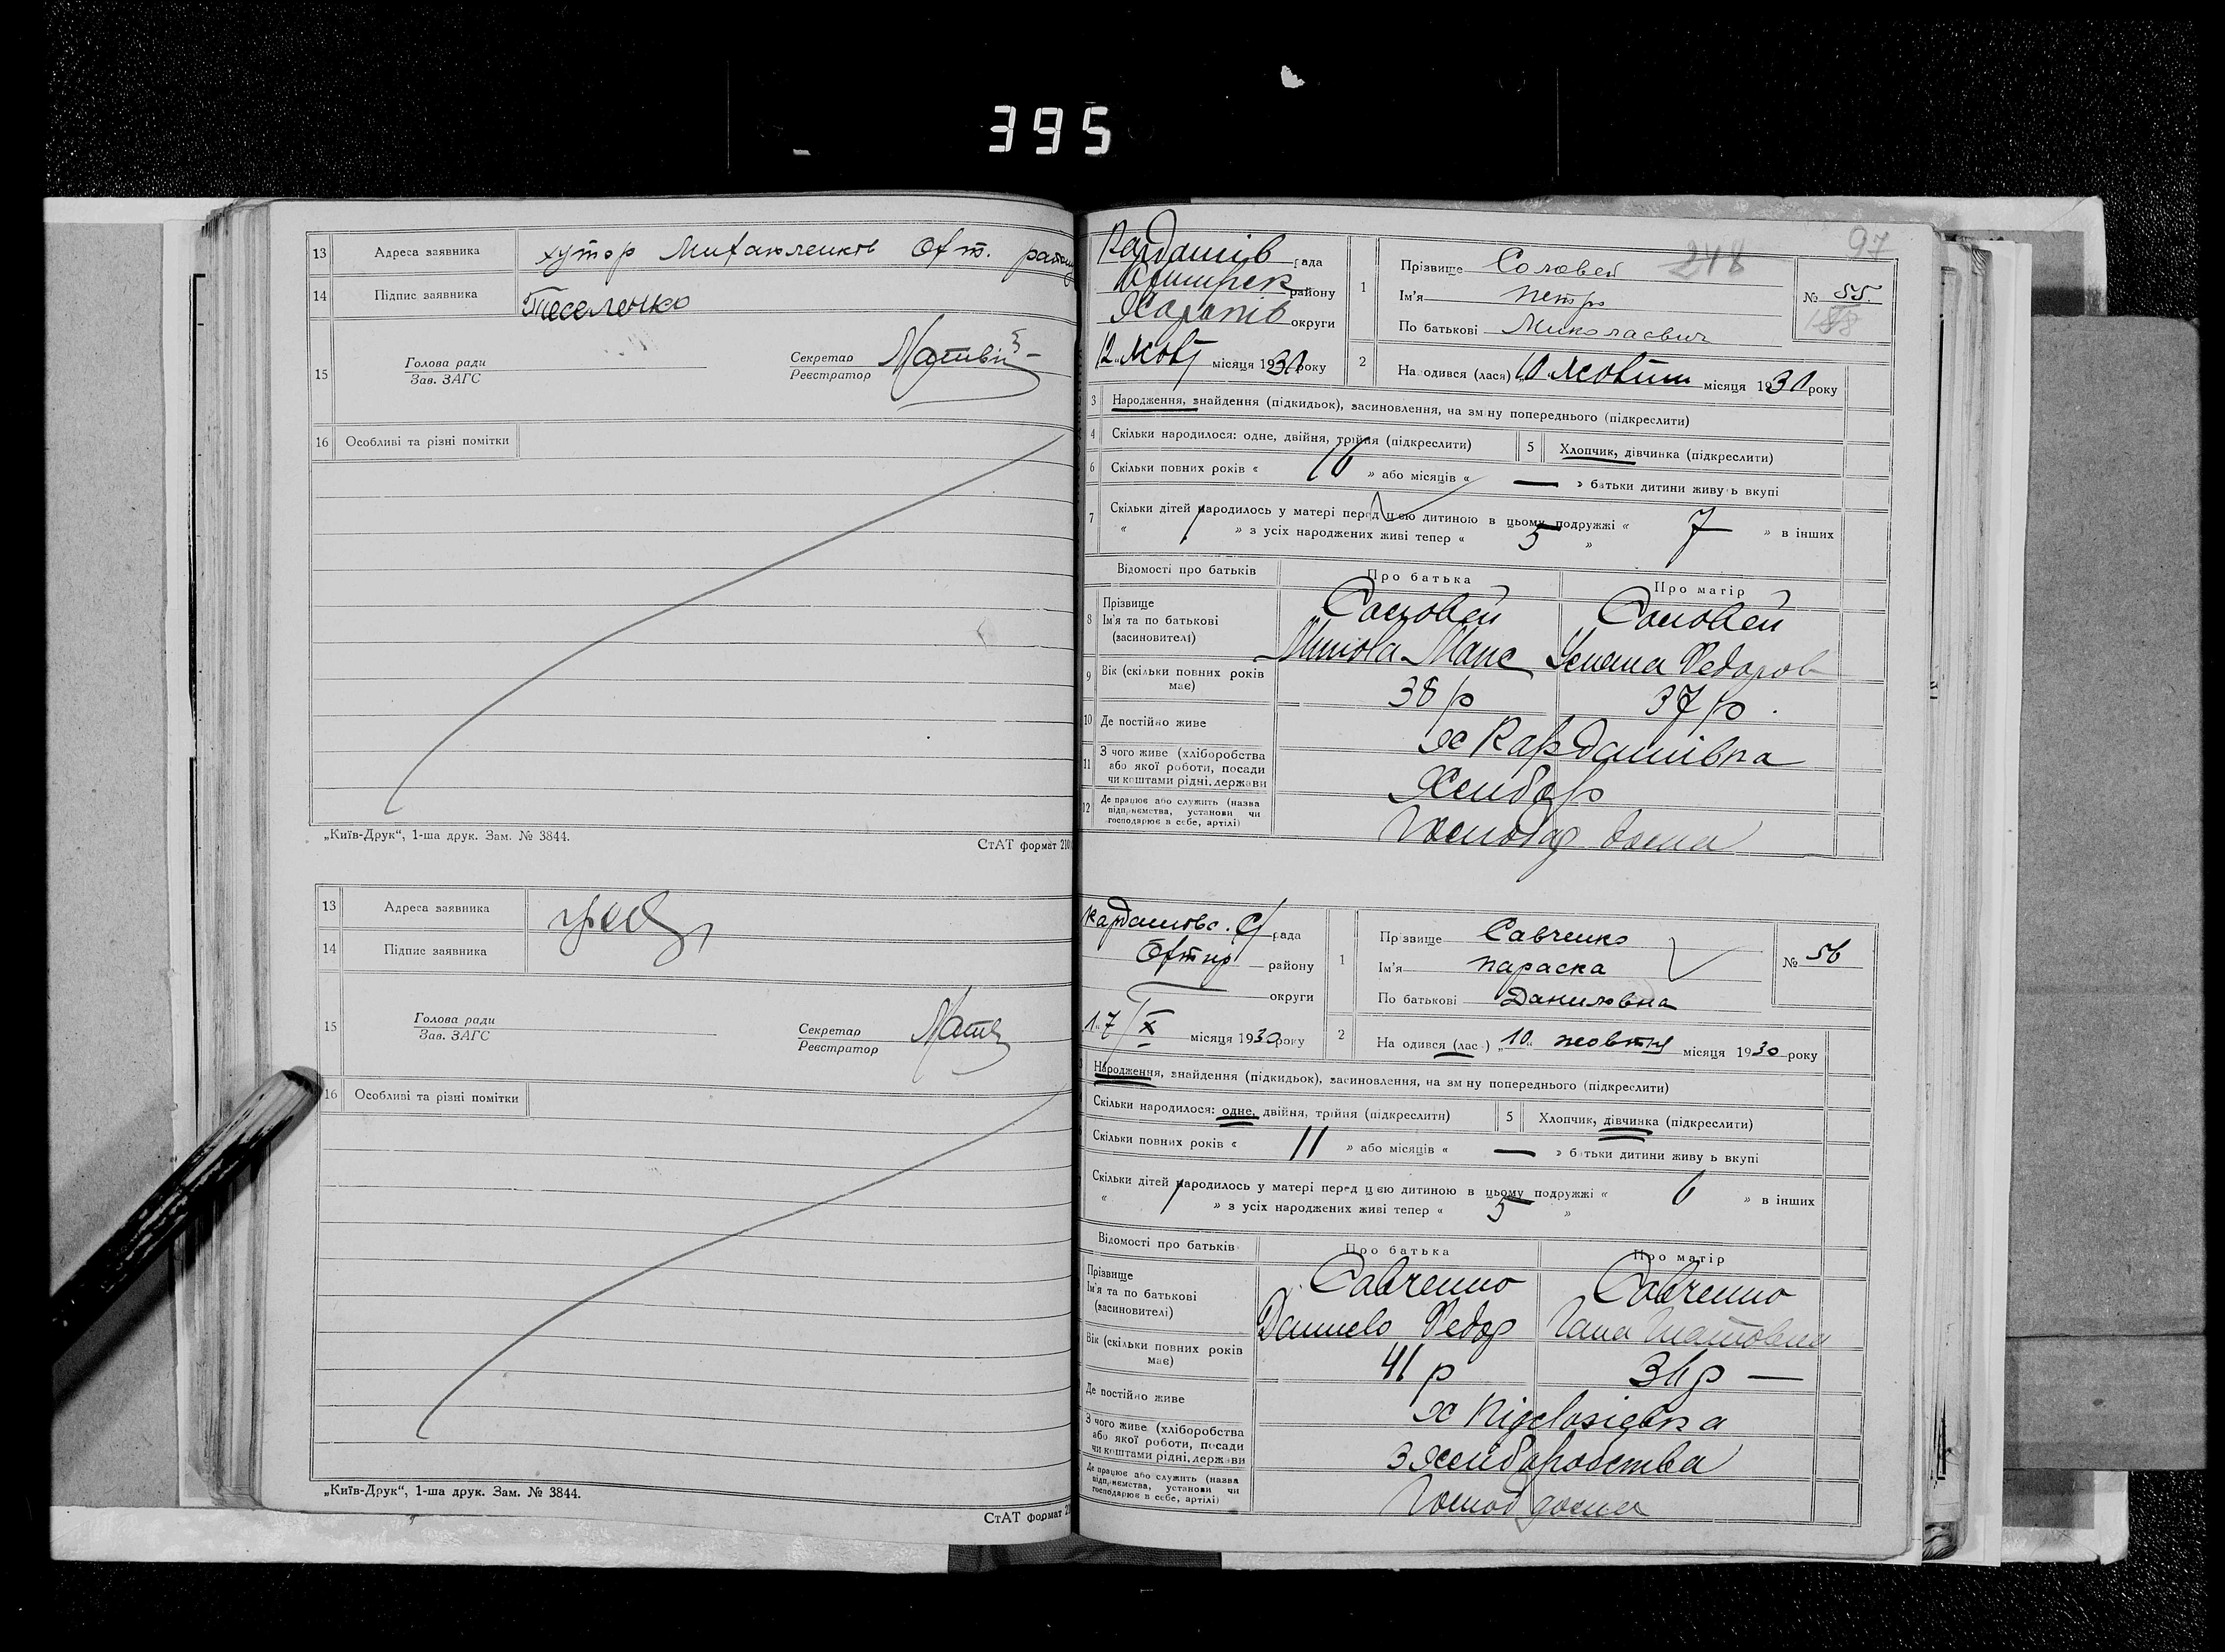 395
13 Адреса заявника хутор Михайленків Охт. району
14 Підпис заявника Теселенко
15 Голова ради
Зав. ЗАГС
Секретар
Реєстратор Матвій
16 Особливі та різні помітки
„Київ-Друк“, 1-ша друк. Зам. № 3844.
СтАТ формат 210
13 Адреса заявника
14 Підпис заявника
15 Голова ради
Зав. ЗАГС
Секретар
Реєстратор
16 Особливі та різні помітки
„Київ-Друк“, 1-ша друк. Зам. № 3844.
СтАТ формат
97
Кардашів рада
району
Харків округи
12 жовт місяця 1930 року
1 Прізвище Соловей 248
Ім'я Петро
По батькові Миколаєвич
№ 55.
188
2 На одився (лася) 10 жовтня місяця 1930 року
3 Народження, знайдення (підкидьок), засиновлення, на зміну попереднього (підкреслити)
4 Скільки народилося: одне, двійня, трійня (підкреслити) 5 Хлопчик, дівчинка (підкреслити)
6 Скільки повних років « 16 » або місяців « — » батьки дитини живуть вкупі
7 Скільки дітей народилось у матері перед цією дитиною в цьому подружжі « 7 » в інших
« / » з усіх народжених живі тепер « 5 »
Відомості про батьків Про батька Про матір
8 Прізвище
Ім'я та по батькові
(засиновителі)
Соловей Соловей
Микола Федоров
9 Вік (скільки повних років
має) 38 р 37 р.
10 Де постійно живе х Кардашівка
11 З чого живе (хліборобства
або якої роботи, посади
чи коштами рідні, держави
Хлібор
12 Де працює або служить (назва
підприємства, установи чи
господарює в себе, артілі)
Господар дома
Кардашовс. С/рада
Охтир району
округи
17/X місяця 1930 року
1 Прізвище Савченко
Ім'я Параска
По батькові Даниловна
№ 56
2 На одився (лас ) „10“ жовтня місяця 1930 року
Народження, знайдення (підкидьок), засиновлення, на зм ну попереднього (підкреслити)
Скільки народилося: одне, двійня, трійня (підкреслити) 5 Хлопчик, дівчинка (підкреслити)
Скільки повних років « 11 » або місяців « — » батьки дитини живу ь вкупі
Скільки дітей народилось у матері перед цією дитиною в цьому подружжі « 6 » в інших
« / » з усіх народжених живі тепер « 5 »
Відомості про батьків Про батька Про матір
Прізвище
Ім'я та по батькові
(засиновителі)
Савченко Савченко
Данило Федор Гана
Вік (скільки повних років
має) 41 р
Де постійно живе х
З чого живе (хліборобства
або якої роботи, посади
чи коштами рідні, держави
З Хліборобства
Де працює або служить (назва
підприємства, установи чи
господарює в себе, артілі)
Господ дома